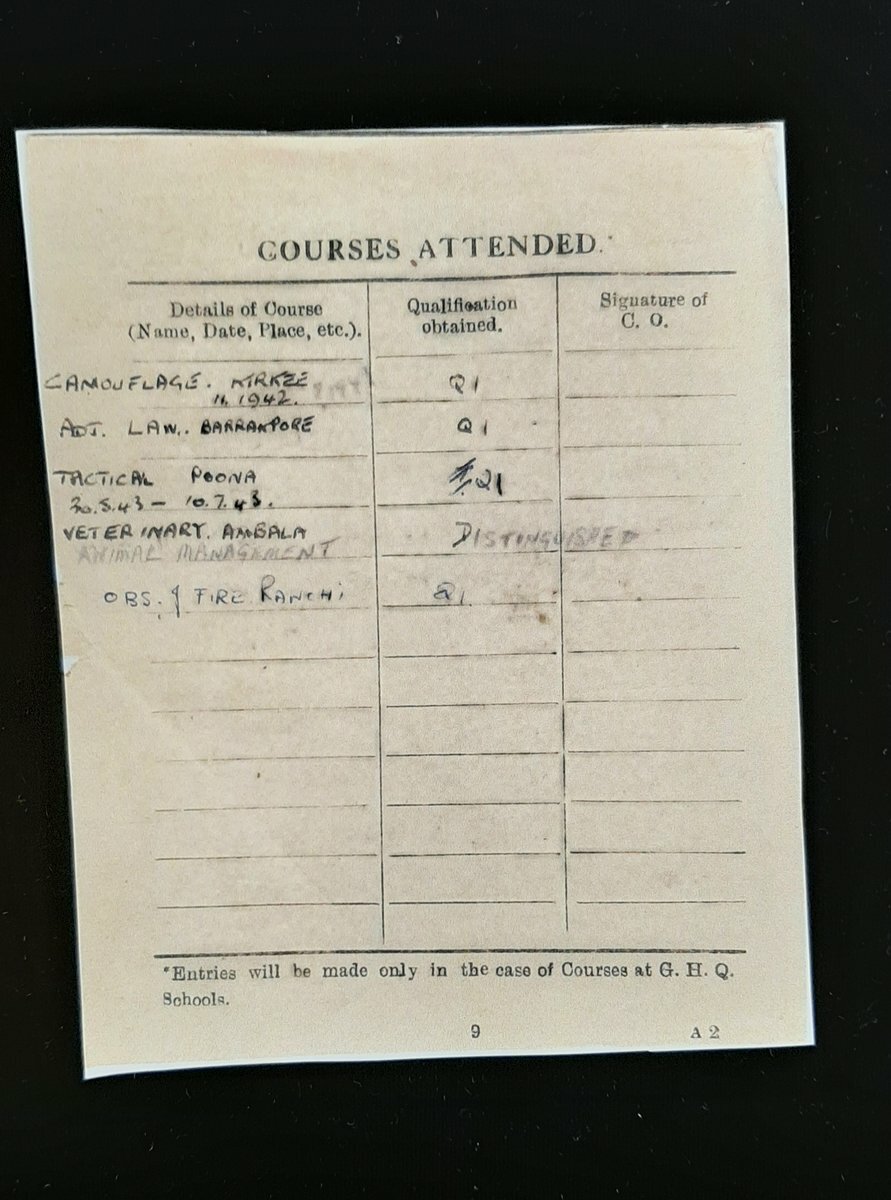 COURSES ATTENDED.*
Details of Course
(Name, Date, Place, etc.).
Qualification
obtained.
Signature of
C. O.
CAMOUFLAGE. KIRKEE Q1
11. 1942.
ADJ. LAW. BARRAKPORE Q1
TACTICAL POONA Q1
20.5.43 — 10.7.43.
VETERINARY. AMBALA DISTINGUISHED
ANIMAL MANAGEMENT
OBS. of FIRE RANCHI Q1
*Entries will be made only in the case of Courses at G. H. Q.
Schools.
9 A 2